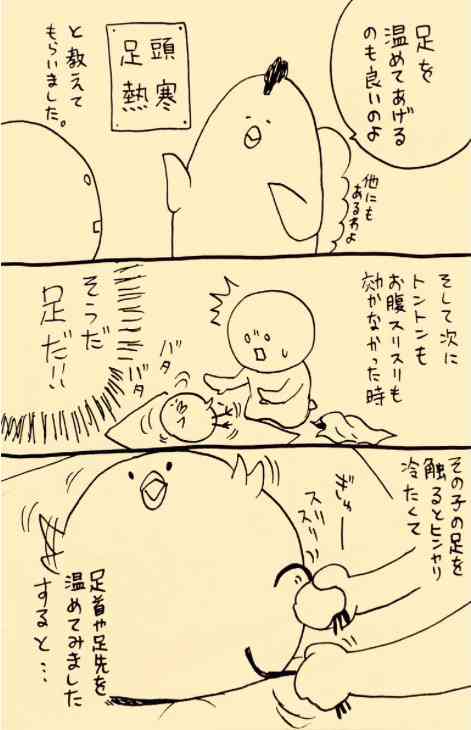 足を
温めてあげる
のも良いのよ
頭寒
足熱
他にも
あるわよ
と教えて
もらいました。
そして次に
トントンも
お腹スリスリも
効かなかった時
バタ
バタ
そうだ
足だ!!
その子の足を
触るとヒンヤリ
冷たくて
ぎゅー
スリ
スリスリ
足首や足先を
温めてみました
すると…